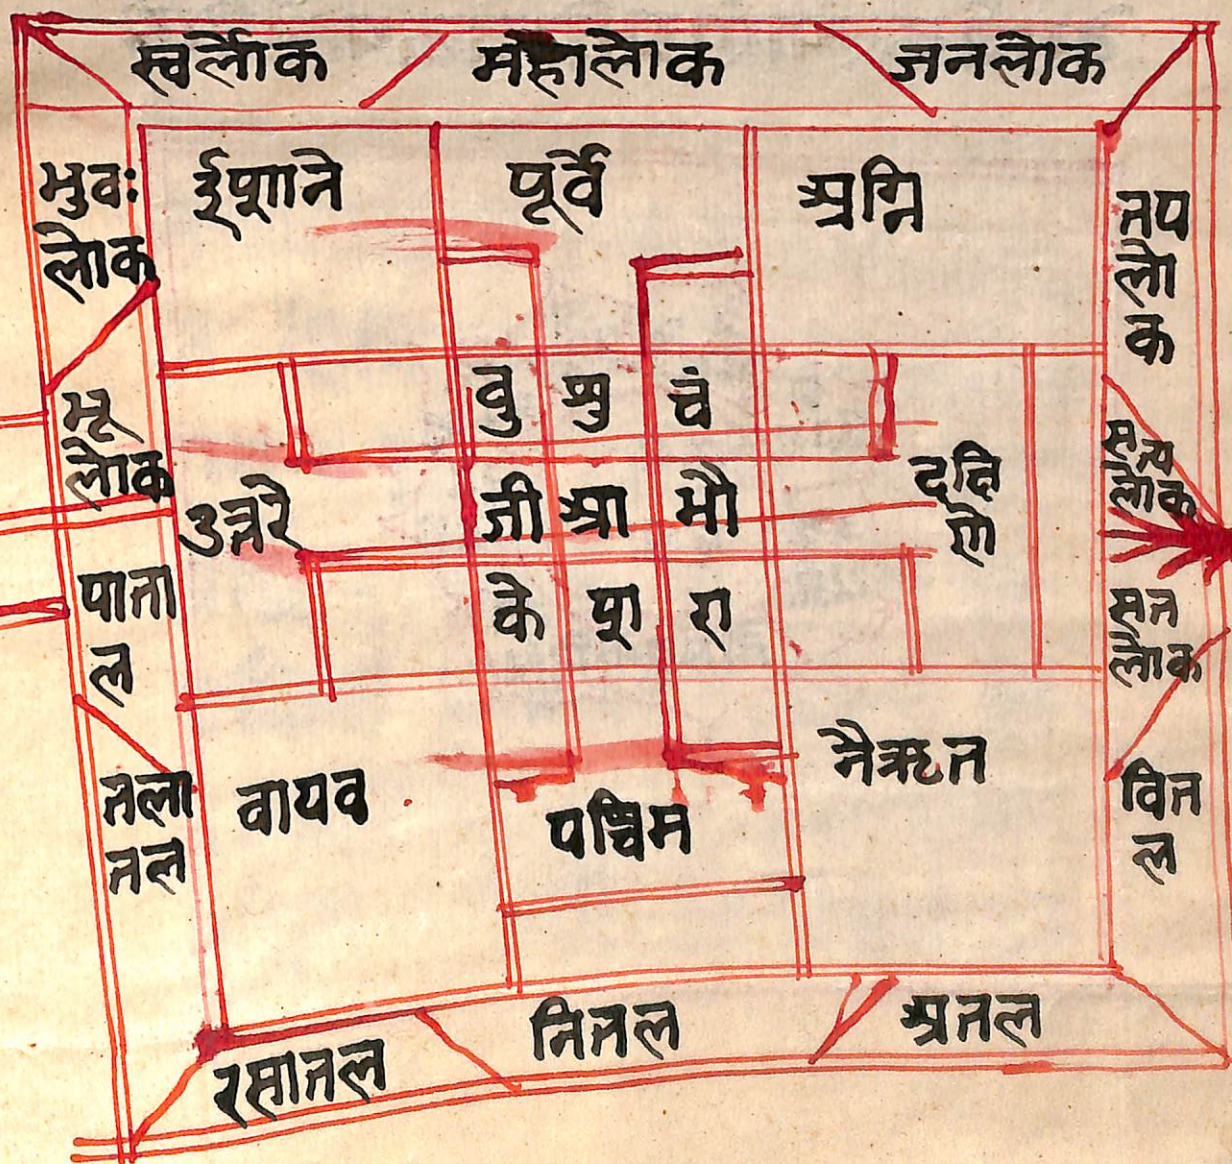 स्वर्लोक महालोक जनलोक
भुवः
लोक
ईशाने पूर्वे अग्नि
तप
लो
क
भू
लोक
बु शु चं
सत्य
लोक
उत्तरे
जी आ भौ
दक्षि
णे
पाता
ल
के श रा
सत
लोक
तला
तल
वायव
पश्चिम
नैऋत
वित
ल
रसातल नितल अतल